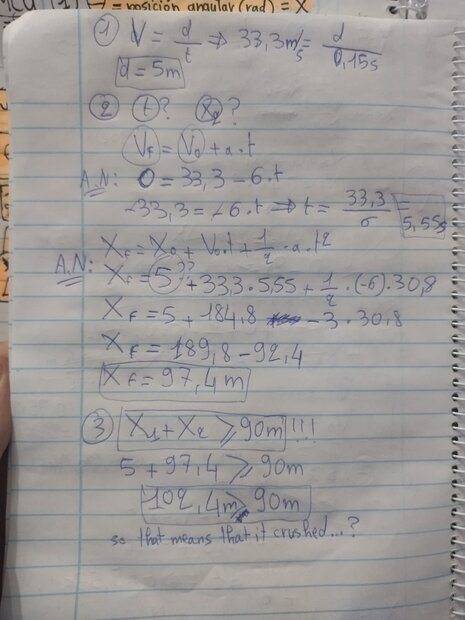 (1) → = posición angular (rad) = X
① V = d/t ⇒ 33,3m/s = d/0,15s
d = 5m
② t? X₂?
Vf = V₀ + a.t
A.N: 0 = 33,3 - 6.t
-33,3 = -6.t ⇒ t = 33,3/6 = 5,55s
Xf = X₀ + V₀.t + 1/2 .a.t²
A.N: Xf = 5?? + 333.5,55 + 1/2 .(-6).30,8
Xf = 5 + 184,8 - 3.30,8
Xf = 189,8 - 92,4
Xf = 97,4 m
③ X₁ + X₂ ⩾ 90m !!!
5 + 97,4 ⩾ 90m
102,4m ⩾ 90m
so that means that it crushed...?